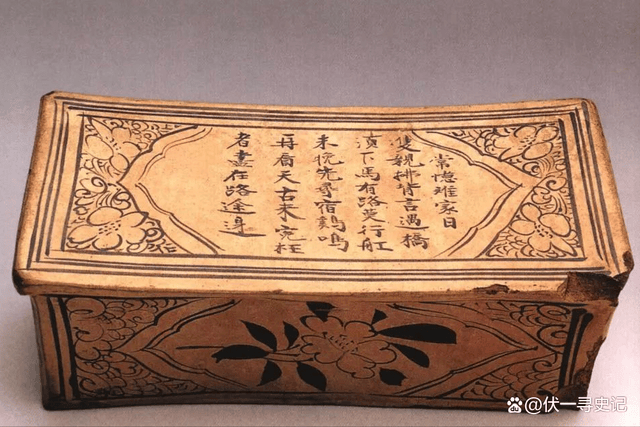 常憶離家日
雙親拊背言過橋
湏下馬有路莫行舡
未晚先尋宿鷄鳴
再看天古来寃枉
者盡在路途邊
@伏一寻史记